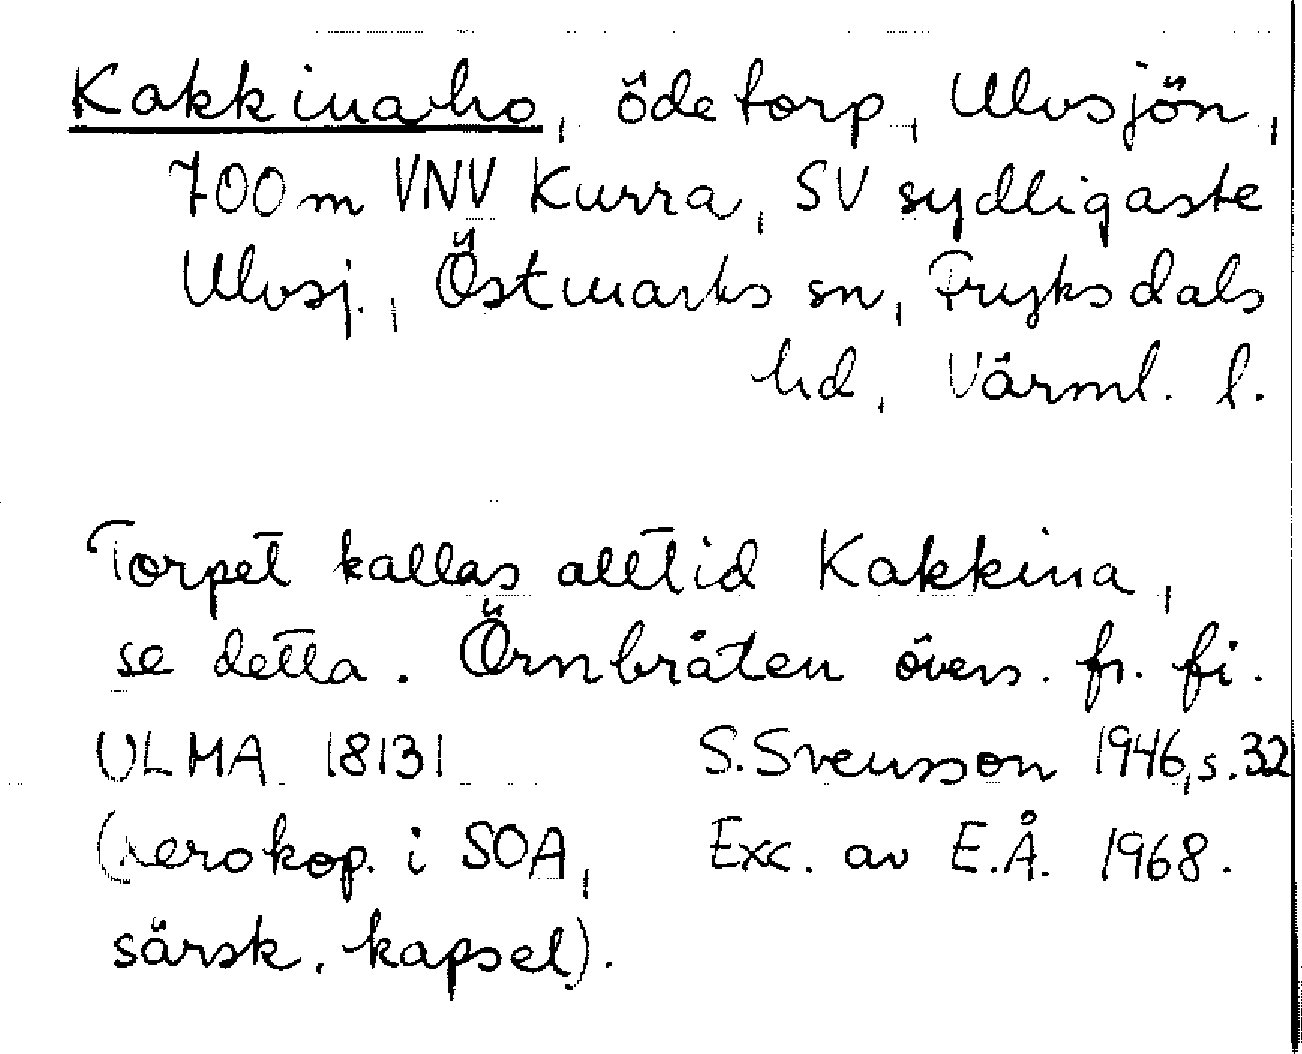 Kakkinaho, ödetorp, Ulvsjön,
700 m VNV Kurra, SV sydligaste
Ulvsj., Östmarks sn, Fryksdals
hd, Värml. l.
Torpet kallas alltid Kakkina,
se detta. Örnbråten övers. fr. fi.
ULMA 18131 S. Svensson 1946, s. 32
(xerokop. i SOA, Exc. av E.Å. 1968.
särsk. kapsel).